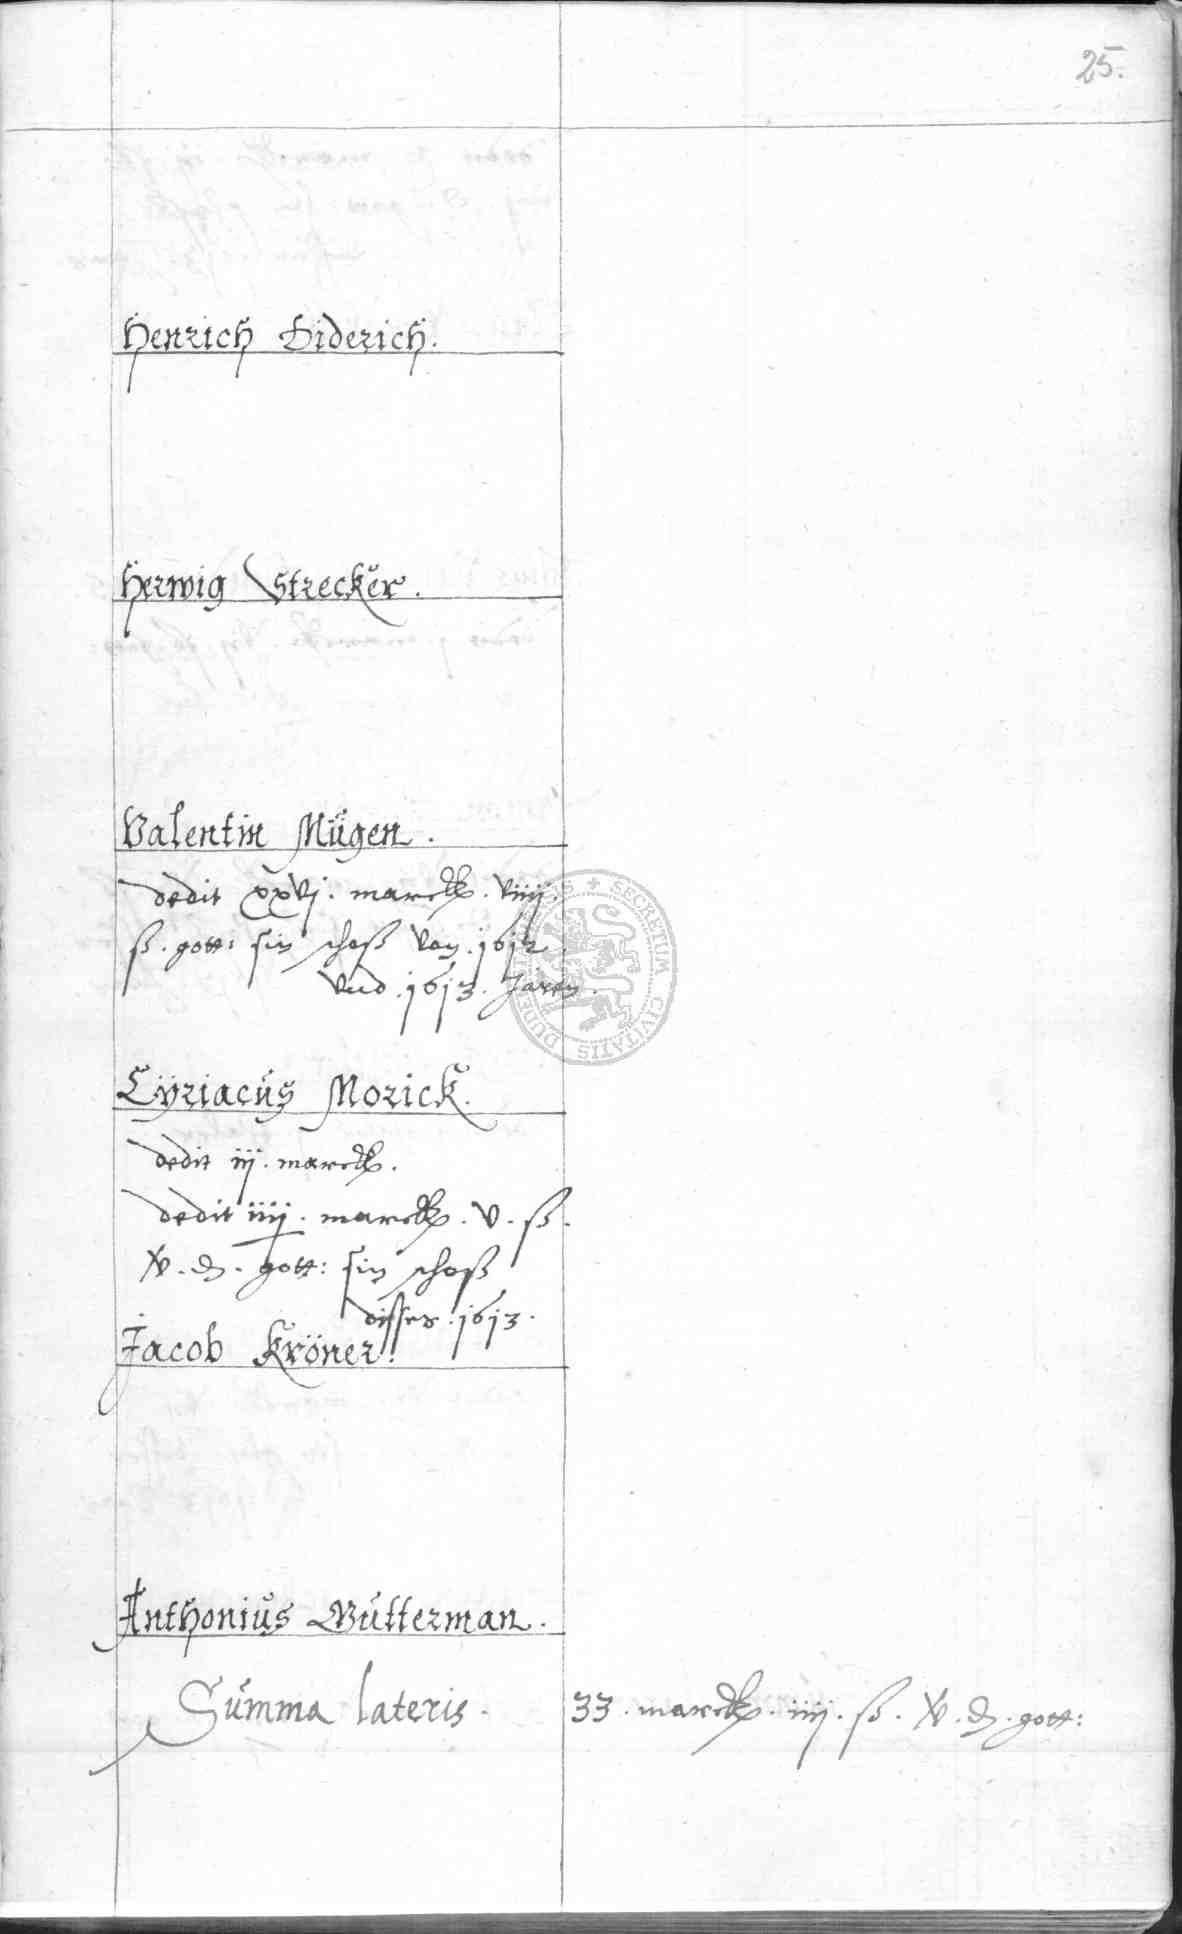 25.
Henrich Diderich.
Herwig Strecker.
Valentin Mügen.
dedit xxvj. marck. viiij.
ß. gott: sin schoß von .1612.
vnd .1613. Jaren.
Cÿriacus Morick.
dedit iij. marck.
dedit iiij. marck. v. ß.
xv. ₰. gott: sin schoß
disses .1613.
Jacob Kröner.
Anthonius Wütterman.
Summa lateris. 33. marck. iiij. ß. xv. ₰. gott:
SECRETUM CIVITATIS